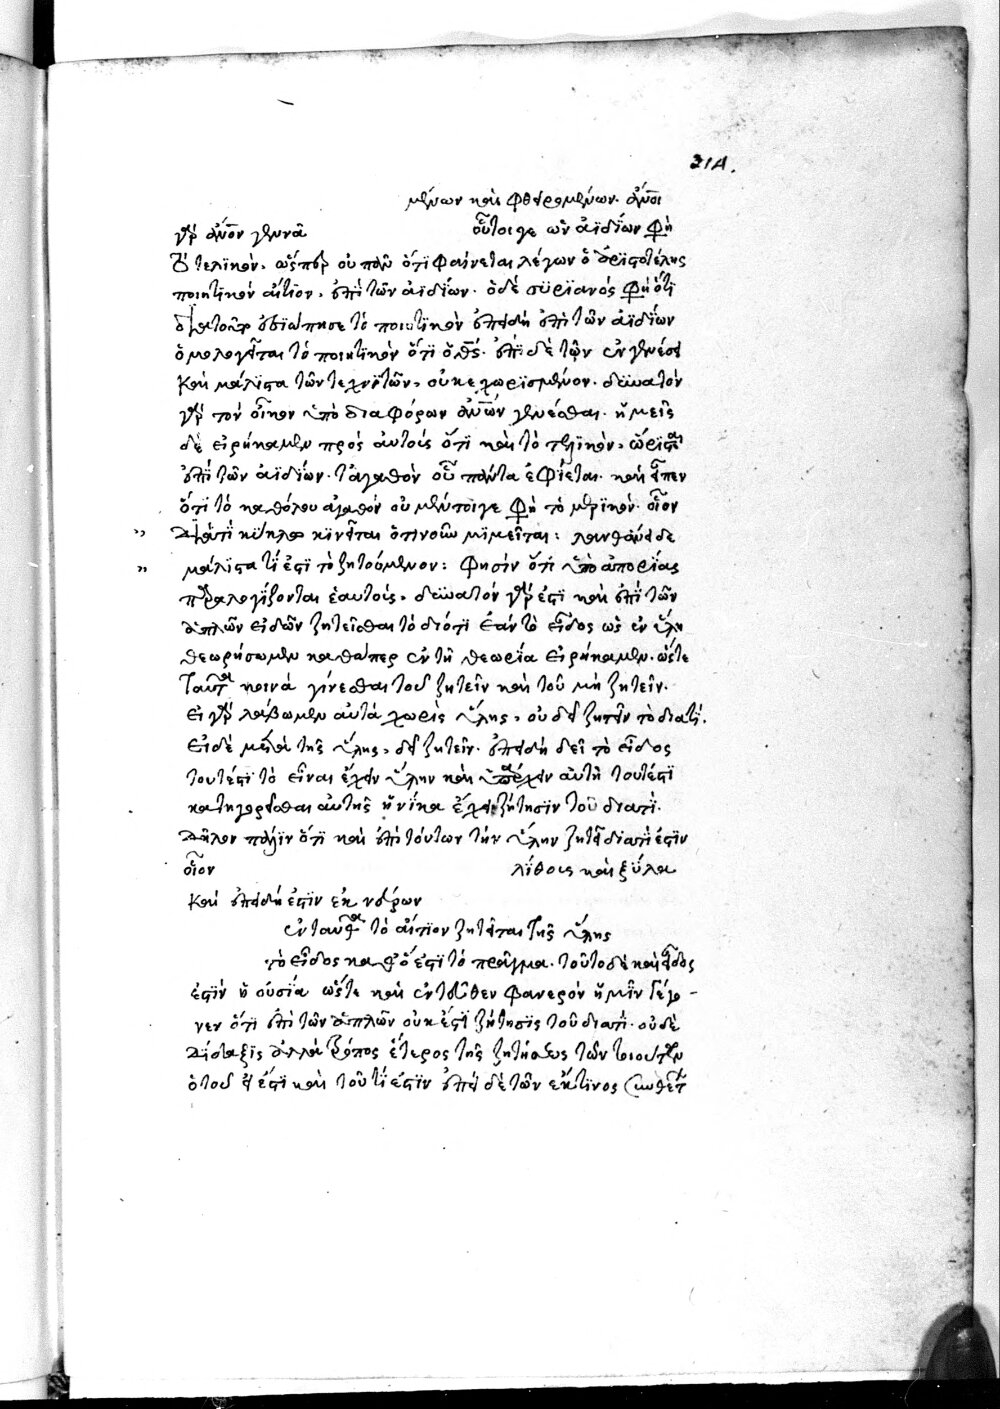 214.
μένων καὶ φθειρομένων. ἄνοι
γὰρ ἄνον γεννᾶ οὗτοι γε ὧν ἀϊδίων φη
τελικὸν. ὥσπερ οὐ πάνυ ὅτι φαίνεται λέγων ὁ ἀριστοτέλης
ποιητικὸν αἴτιον. ἐπὶ τῶν ἀϊδίων. ὁ δὲ συριανός φη ὅτι
διὰ τοῦτο ἐσιώπησε τὸ ποιητικὸν ἐπειδὴ ἐπὶ τῶν ἀϊδίων
ὁμολογεῖται τὸ ποιητικὸν ὅτι ὁ θς. ἐπεὶ δὲ τῶν ἐν γενέσει
καὶ μάλιστα τῶν τεχνητῶν, οὐ κεχωρισμένον. δυνατὸν
γὰρ τὸν οἶκον ὑπὸ διαφόρων ἀνων γενέσθαι. ἡμεῖς
δὲ εἰρήκαμεν πρὸς αὐτοὺς ὅτι καὶ τὸ τελικὸν, ὥρισται
ἐπὶ τῶν ἀϊδίων. τἀγαθὸν οὗ πάντα ἐφίεται. καὶ εἶπεν
ὅτι τὸ καθόλου ἀγαθὸν οὐ μέντοιγε φη τὸ μερικὸν. οἷον
διὰ τί κύκλω κινεῖται ὅτι νοῦν μιμεῖται: λανθάνει δε
μάλιστα τί ἐστι τὸ ζητούμενον: φησὶν ὅτι ὑπὸ ἀπορίας
παραλογίζονται ἑαυτοὺς. δυνατόν γὰρ ἐστι καὶ ἐπὶ τῶν
ἁπλῶν εἰδῶν ζητεῖσθαι τὸ διότι ἐὰν τὸ εἶδος ὡς ἐν ὕλη
θεωρήσωμεν καθάπερ ἐν τῆ θεωρία εἰρήκαμεν. ὥστε
ταῦτα κοινὰ γίνεσθαι τοῦ ζητεῖν καὶ τοῦ μὴ ζητεῖν.
εἰ γὰρ λάβωμεν αὐτὰ χωρὶς ὕλης, οὐ δεῖ ζητεῖν τὸ διατί.
εἰ δὲ μετὰ τῆς ὕλης, δεῖ ζητεῖν. ἐπειδὴ δεῖ τὸ εἶδος
τουτέστι τὸ εἶναι ἔχειν ὕλην καὶ ὑπάρχειν αὐτῆ τουτέστι
κατηγορεῖσθαι αὐτῆς ἡνίκα ἔχει ζήτησιν τοῦ διατί.
δῆλον πάλιν ὅτι καὶ ἐπὶ τούτων τὴν ὕλην ζητεῖ διατί ἐστιν
οἷον λίθοις καὶ ξύλα
καὶ ἐπειδή ἐστιν ἐκ νεύρων
ἐνταῦθα τὸ αἴτιον ζητεῖται τῆς ὕλης
τὸ εἶδος καθ' ὅ ἐστι τὸ πρᾶγμα. τοῦτο δὲ καὶ εἶδος
ἐστὶν ἡ οὐσία ὥστε καὶ ἐντεῦθεν φανερὸν ἡμῖν γέγο-
νεν ὅτι ἐπὶ τῶν ἁπλῶν οὐκ ἔστι ζήτησις τοῦ διατί. οὐδὲ
δίδαξις ἀλλὰ τρόπος ἕτερος τῆς ζητήσεως τῶν τοιούτων
ὁ τοῦ εἰ ἔστι καὶ τοῦ τί ἐστιν ἐπεὶ δὲ τῶν ἔκ τινος